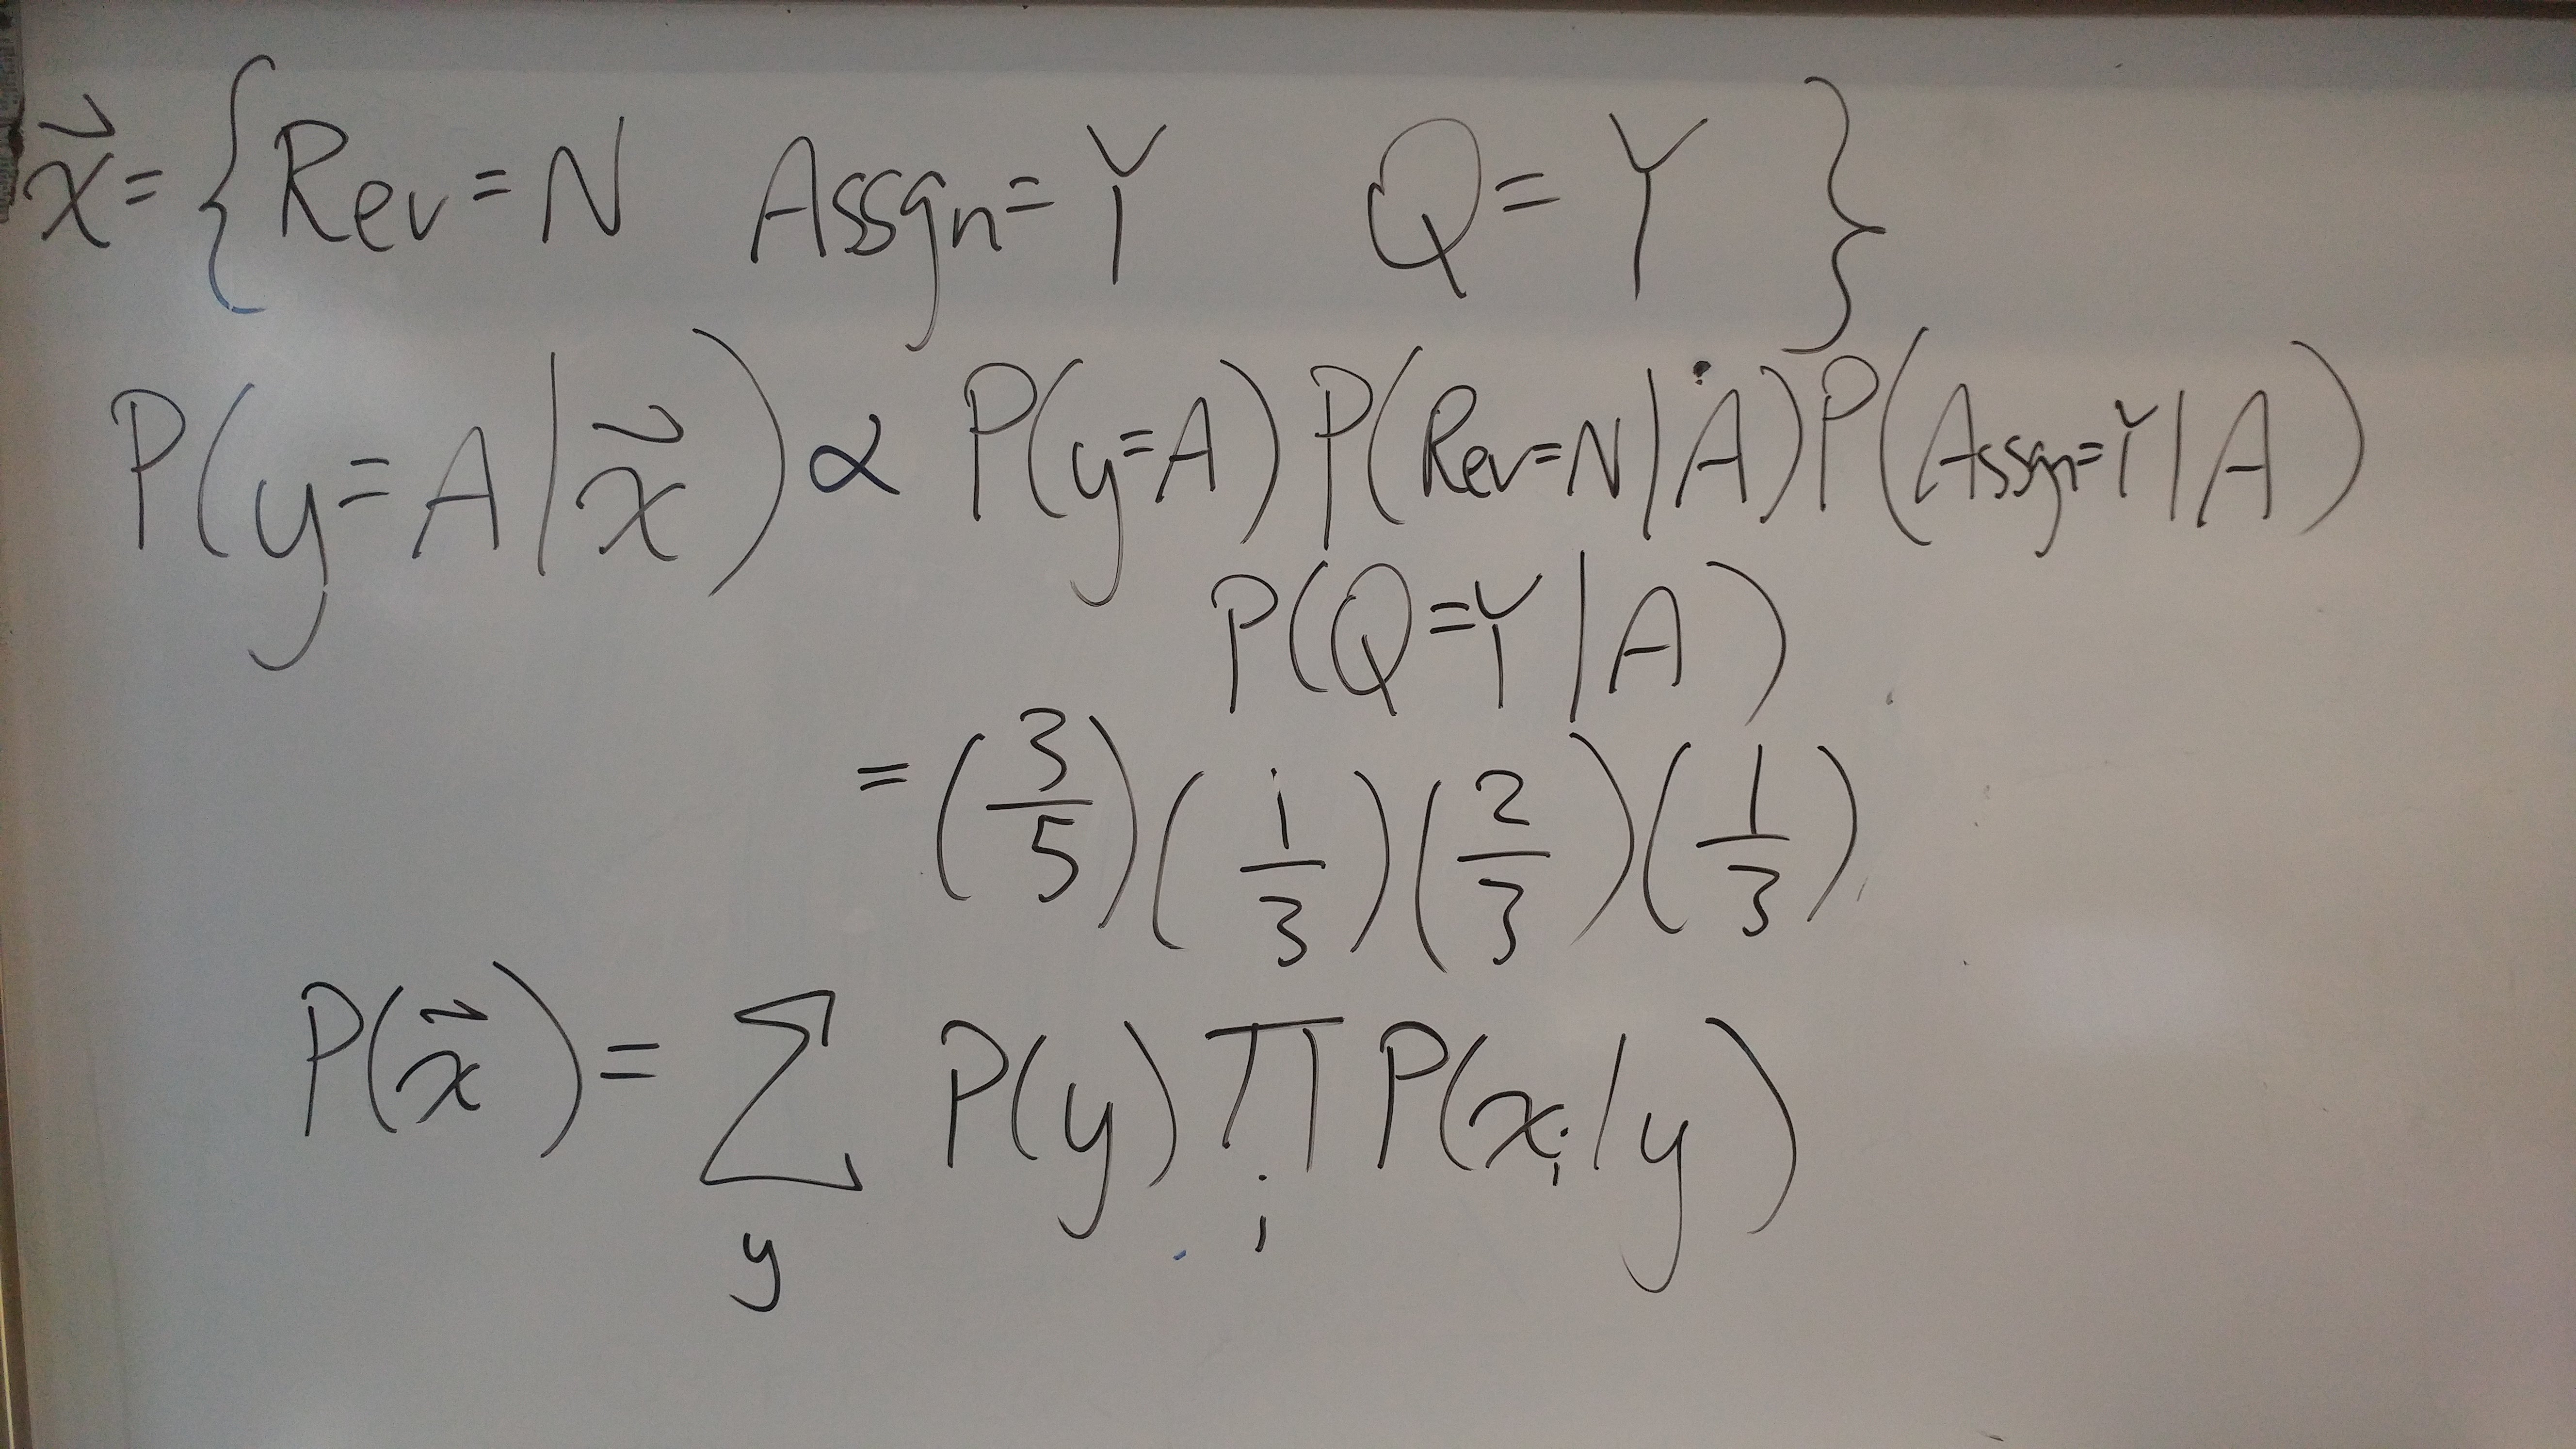 x⃗ = { Rev = N Assgn = Y Q = Y }
P(y = A | x⃗) ∝ P(y = A) P(Rev = N | A) P(Assgn = Y | A)
P(Q = Y | A)
= (3/5) (1/3) (2/3) (1/3)
P(x⃗) = ∑_y P(y) ∏_i P(x_i | y)